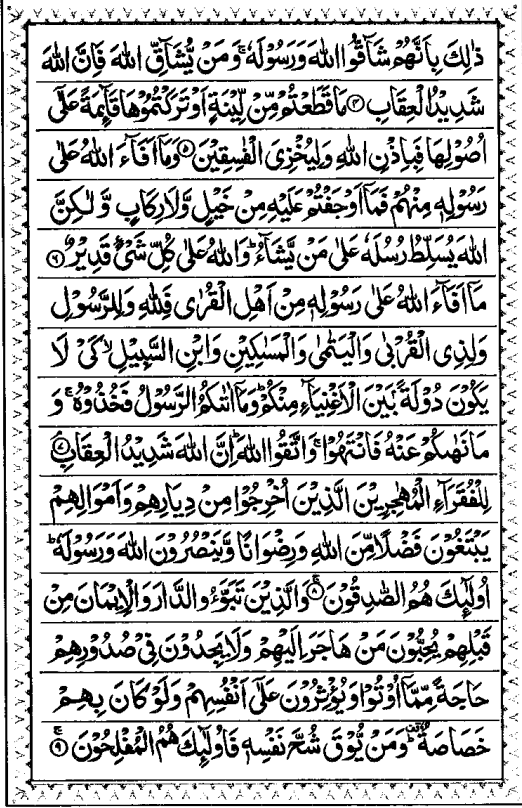 ذٰلِكَ بِاَنَّهُمْ شَآقُّوا اللّٰهَ وَرَسُوْلَهٗ ۚ وَمَنْ يُّشَآقِّ اللّٰهَ فَاِنَّ اللّٰهَ
شَدِيْدُ الْعِقَابِ ﴿۴﴾ مَا قَطَعْتُمْ مِّنْ لِّيْنَةٍ اَوْ تَرَكْتُمُوْهَا قَآئِمَةً عَلٰٓى
اُصُوْلِهَا فَبِاِذْنِ اللّٰهِ وَلِيُخْزِىَ الْفٰسِقِيْنَ ﴿۵﴾ وَمَآ اَفَآءَ اللّٰهُ عَلٰى
رَسُوْلِهٖ مِنْهُمْ فَمَآ اَوْجَفْتُمْ عَلَيْهِ مِنْ خَيْلٍ وَّلَا رِكَابٍ وَّلٰكِنَّ
اللّٰهَ يُسَلِّطُ رُسُلَهٗ عَلٰى مَنْ يَّشَآءُ ؕ وَاللّٰهُ عَلٰى كُلِّ شَىْءٍ قَدِيْرٌ ﴿۶﴾
مَآ اَفَآءَ اللّٰهُ عَلٰى رَسُوْلِهٖ مِنْ اَهْلِ الْقُرٰى فَلِلّٰهِ وَلِلرَّسُوْلِ
وَلِذِى الْقُرْبٰى وَالْيَتٰمٰى وَالْمَسٰكِيْنِ وَابْنِ السَّبِيْلِ ۙ كَىْ لَا
يَكُوْنَ دُوْلَةًۢ بَيْنَ الْاَغْنِيَآءِ مِنْكُمْ ؕ وَمَآ اٰتٰىكُمُ الرَّسُوْلُ فَخُذُوْهُ ۚ وَ
مَا نَهٰىكُمْ عَنْهُ فَانْتَهُوْا ۚ وَاتَّقُوا اللّٰهَ ؕ اِنَّ اللّٰهَ شَدِيْدُ الْعِقَابِ ﴿۷﴾
لِلْفُقَرَآءِ الْمُهٰجِرِيْنَ الَّذِيْنَ اُخْرِجُوْا مِنْ دِيَارِهِمْ وَاَمْوَالِهِمْ
يَبْتَغُوْنَ فَضْلًا مِّنَ اللّٰهِ وَرِضْوَانًا وَّيَنْصُرُوْنَ اللّٰهَ وَرَسُوْلَهٗ ؕ
اُولٰٓئِكَ هُمُ الصّٰدِقُوْنَ ﴿۸﴾ وَالَّذِيْنَ تَبَوَّءُو الدَّارَ وَالْاِيْمَانَ مِنْ
قَبْلِهِمْ يُحِبُّوْنَ مَنْ هَاجَرَ اِلَيْهِمْ وَلَا يَجِدُوْنَ فِىْ صُدُوْرِهِمْ
حَاجَةً مِّمَّآ اُوْتُوْا وَيُؤْثِرُوْنَ عَلٰٓى اَنْفُسِهِمْ وَلَوْ كَانَ بِهِمْ
خَصَاصَةٌ ؕ وَمَنْ يُّوْقَ شُحَّ نَفْسِهٖ فَاُولٰٓئِكَ هُمُ الْمُفْلِحُوْنَ ﴿۹﴾